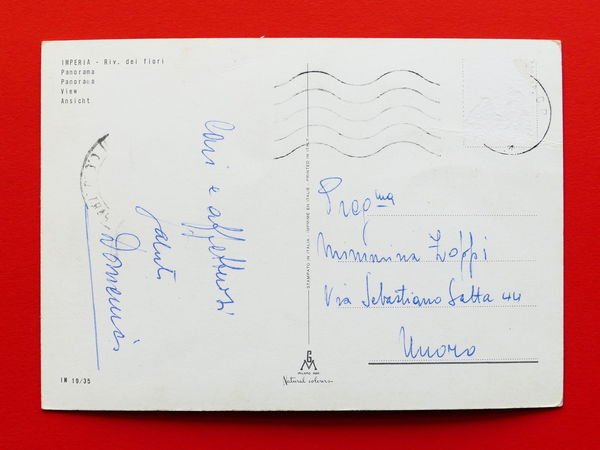 IMPERIA - Riv. dei fiori
Panorama
Panorama
View
Ansicht
Cari e affettuosi
saluti
Domenico
IM 19/35
STAMPATO IN ITALIA IMPRIMÉ EN ITALIE PRINTED IN ITALY
GM
MILANO
Natural colours
Preg.ma
Mimmina Zoppi
Via Sebastiano Satta 44
Nuoro